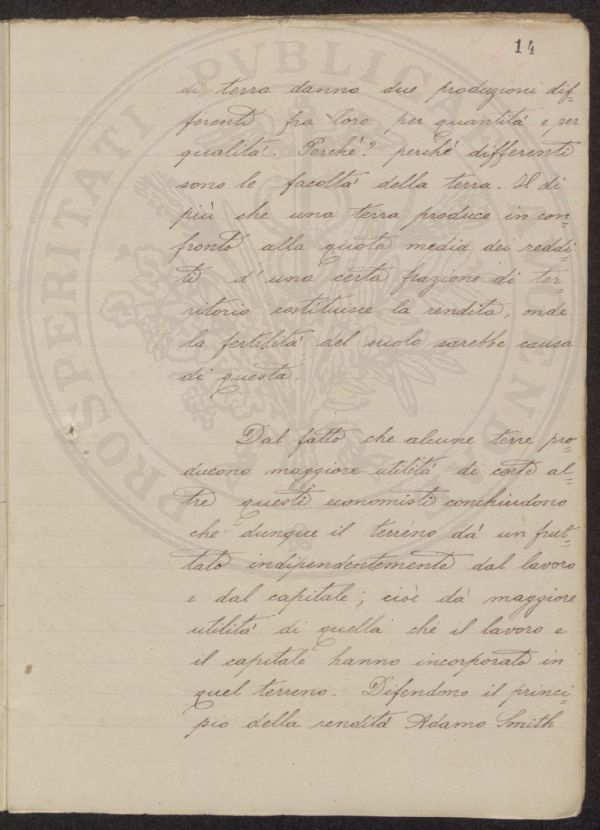 14
di terra danno due produzioni dif=
ferenti fra loro per quantità e per
qualità. Perché? perché differenti
sono le facoltà della terra. Il di
più che una terra produce in con=
fronto alla quota media dei reddi=
ti d'una certa frazione di ter=
ritorio costituisce la rendita, onde
la fertilità del suolo sarebbe causa
di questa.
Dal fatto che alcune terre pro=
ducono maggiore utilità di certe al=
tre questi economisti conchiudono
che dunque il terreno dà un frut=
tato indipendentemente dal lavoro
e dal capitale; cioè dà maggiore
utilità di quella che il lavoro e
il capitale hanno incorporato in
quel terreno. Difendono il princi=
pio della rendita Adamo Smith
PROSPERITATI PVBLICAE AVGENDAE